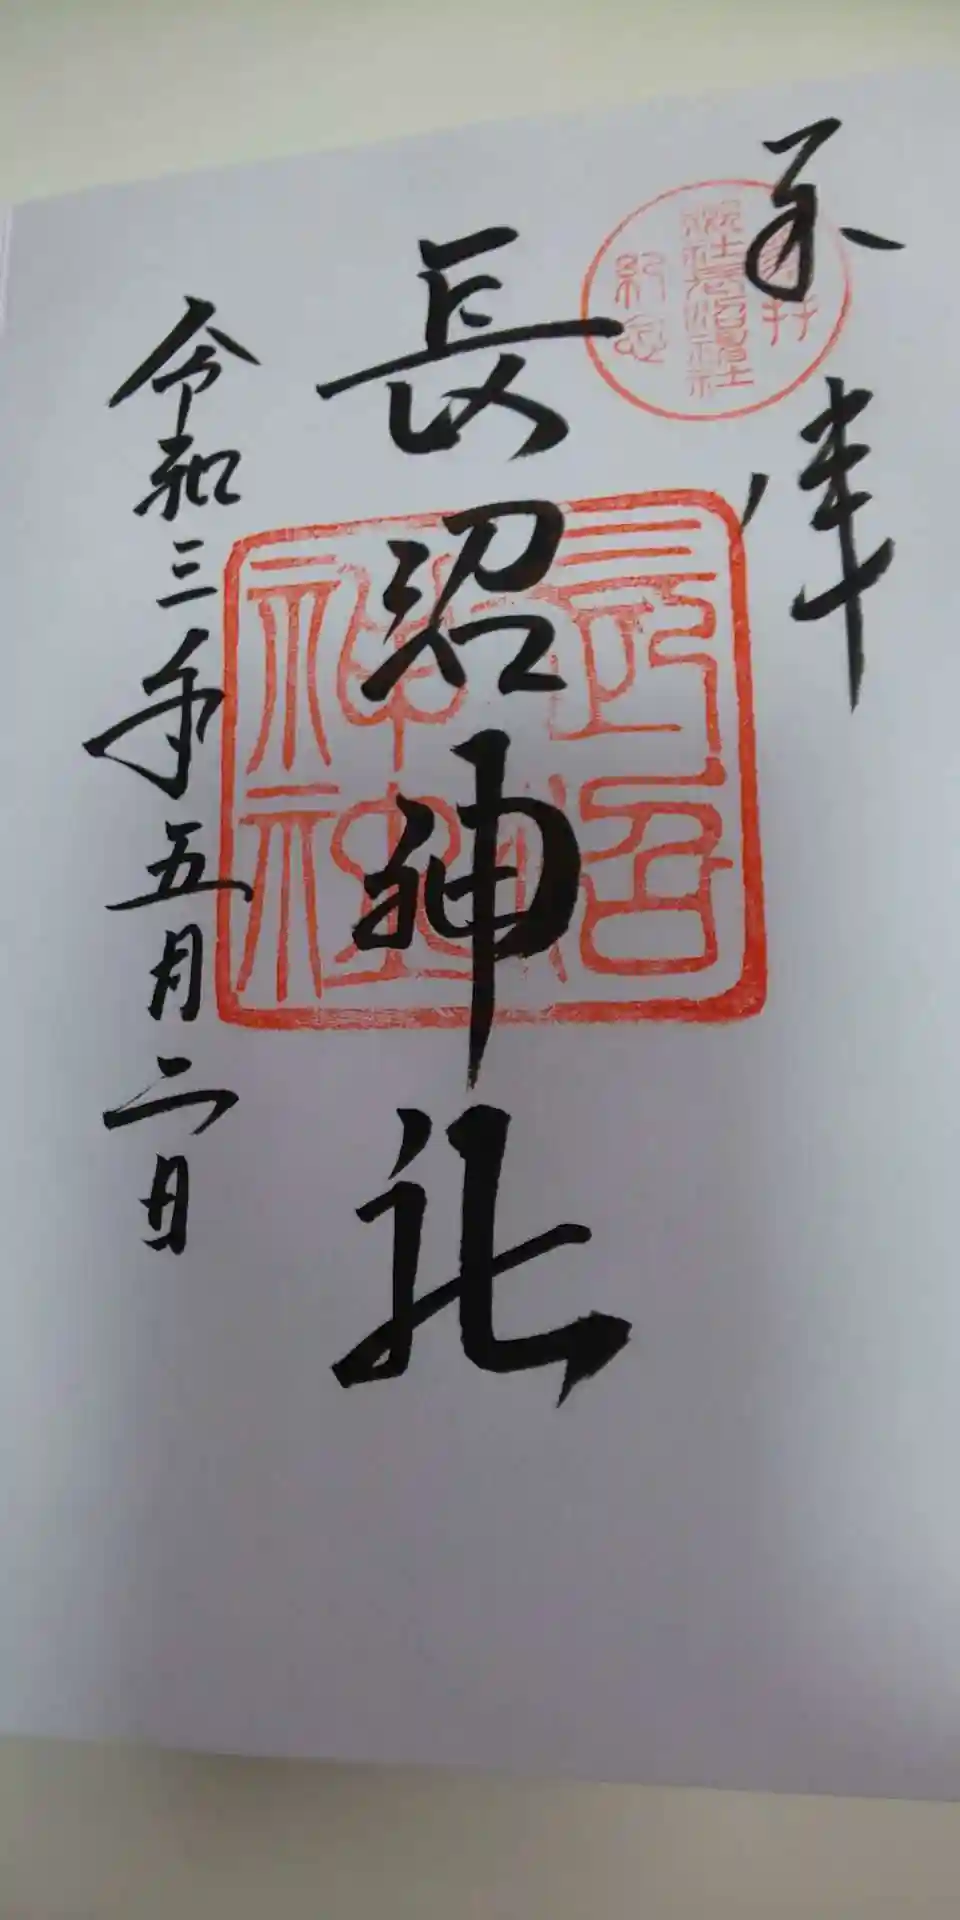 奉拝
長沼神社
令和三年五月二日
長沼神社
参拝
紀念